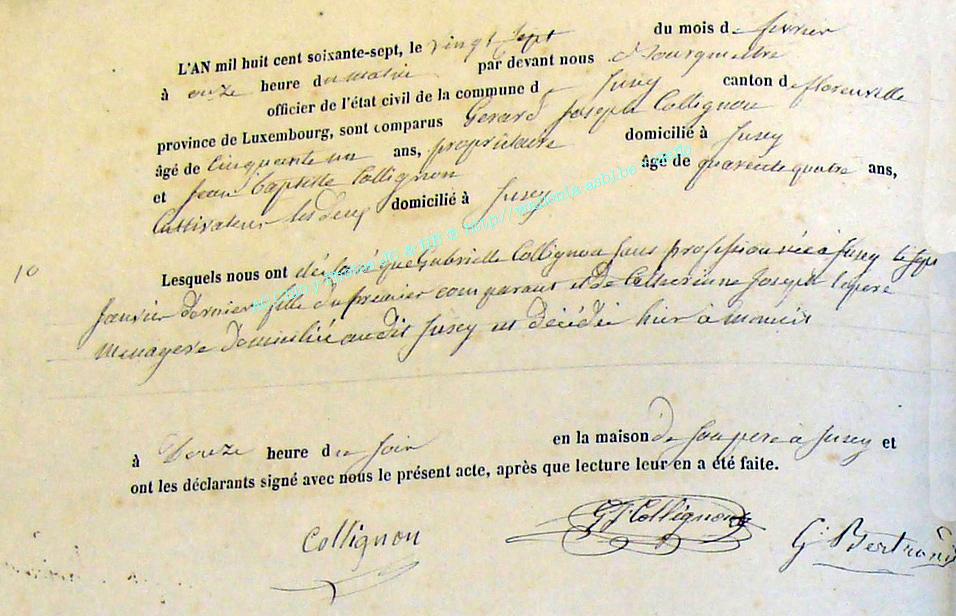 L'AN mil huit cent soixante-sept, le vingt sept du mois de fevrier
à onze heure du matin par devant nous Bourgmestre
officier de l'état civil de la commune de Jusey canton de florenville
province de Luxembourg, sont comparus Gerard Joseph Collignon
âgé de Cinquante un ans, propriétaire domicilié à Jusey
et Jean Baptiste Collignon âgé de quarente quatre ans,
Cultivateur les deux domicilié à Jusey
10
Lesquels nous ont déclaré que Gabrielle Collignon sans profession née à Jusey le sept
Janvier dernier fille du premier comparant et de Catherinne Joseph lapere
menagere domiciliée audit Jusey est décédée hier a
à Douze heure du soir en la maison de son pere à Jusey et
ont les déclarants signé avec nous le présent acte, après que lecture leur en a été faite.
Collignon GJCollignon G. Bertrand